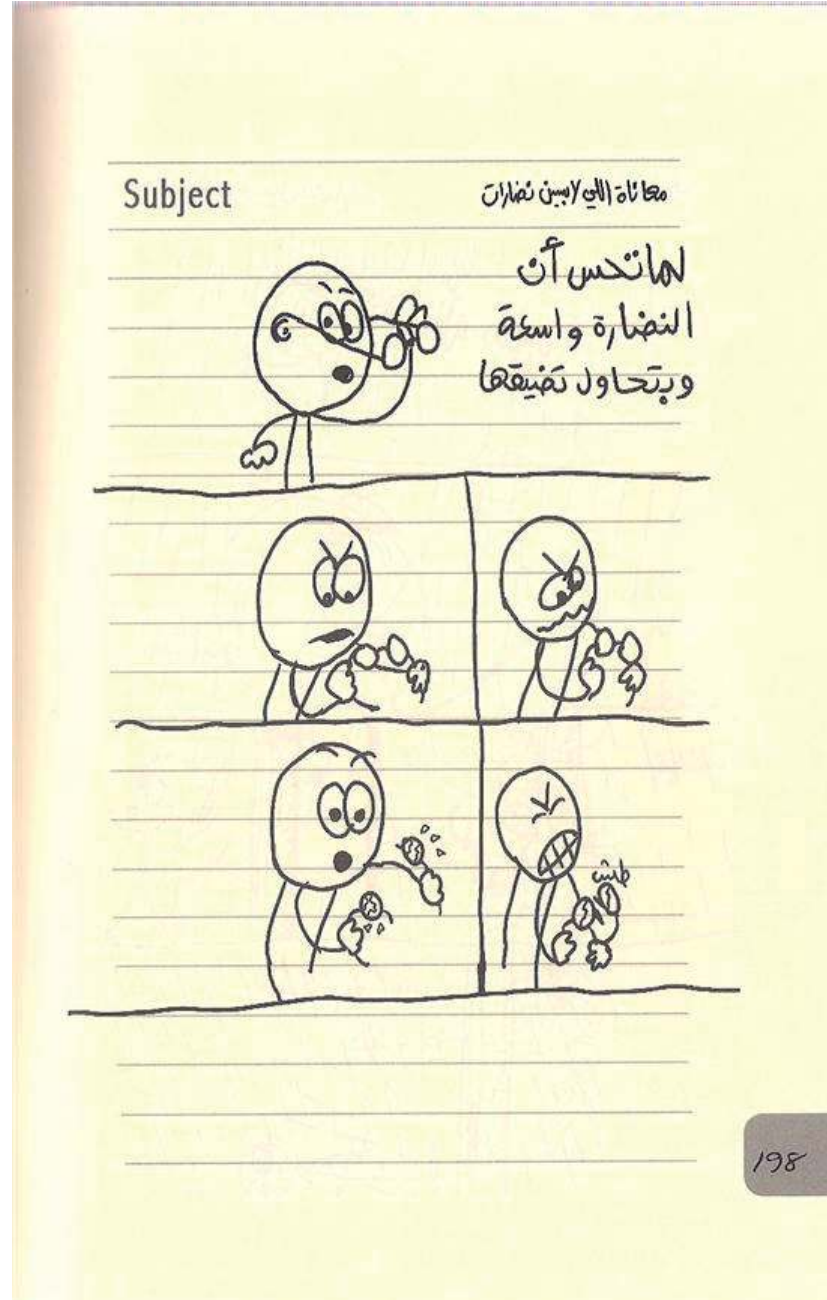 Subject
معاناة اللي لابسين نضارات
لما تحس أن
النضارة واسعة
وبتحاول تضيقها
طش
198